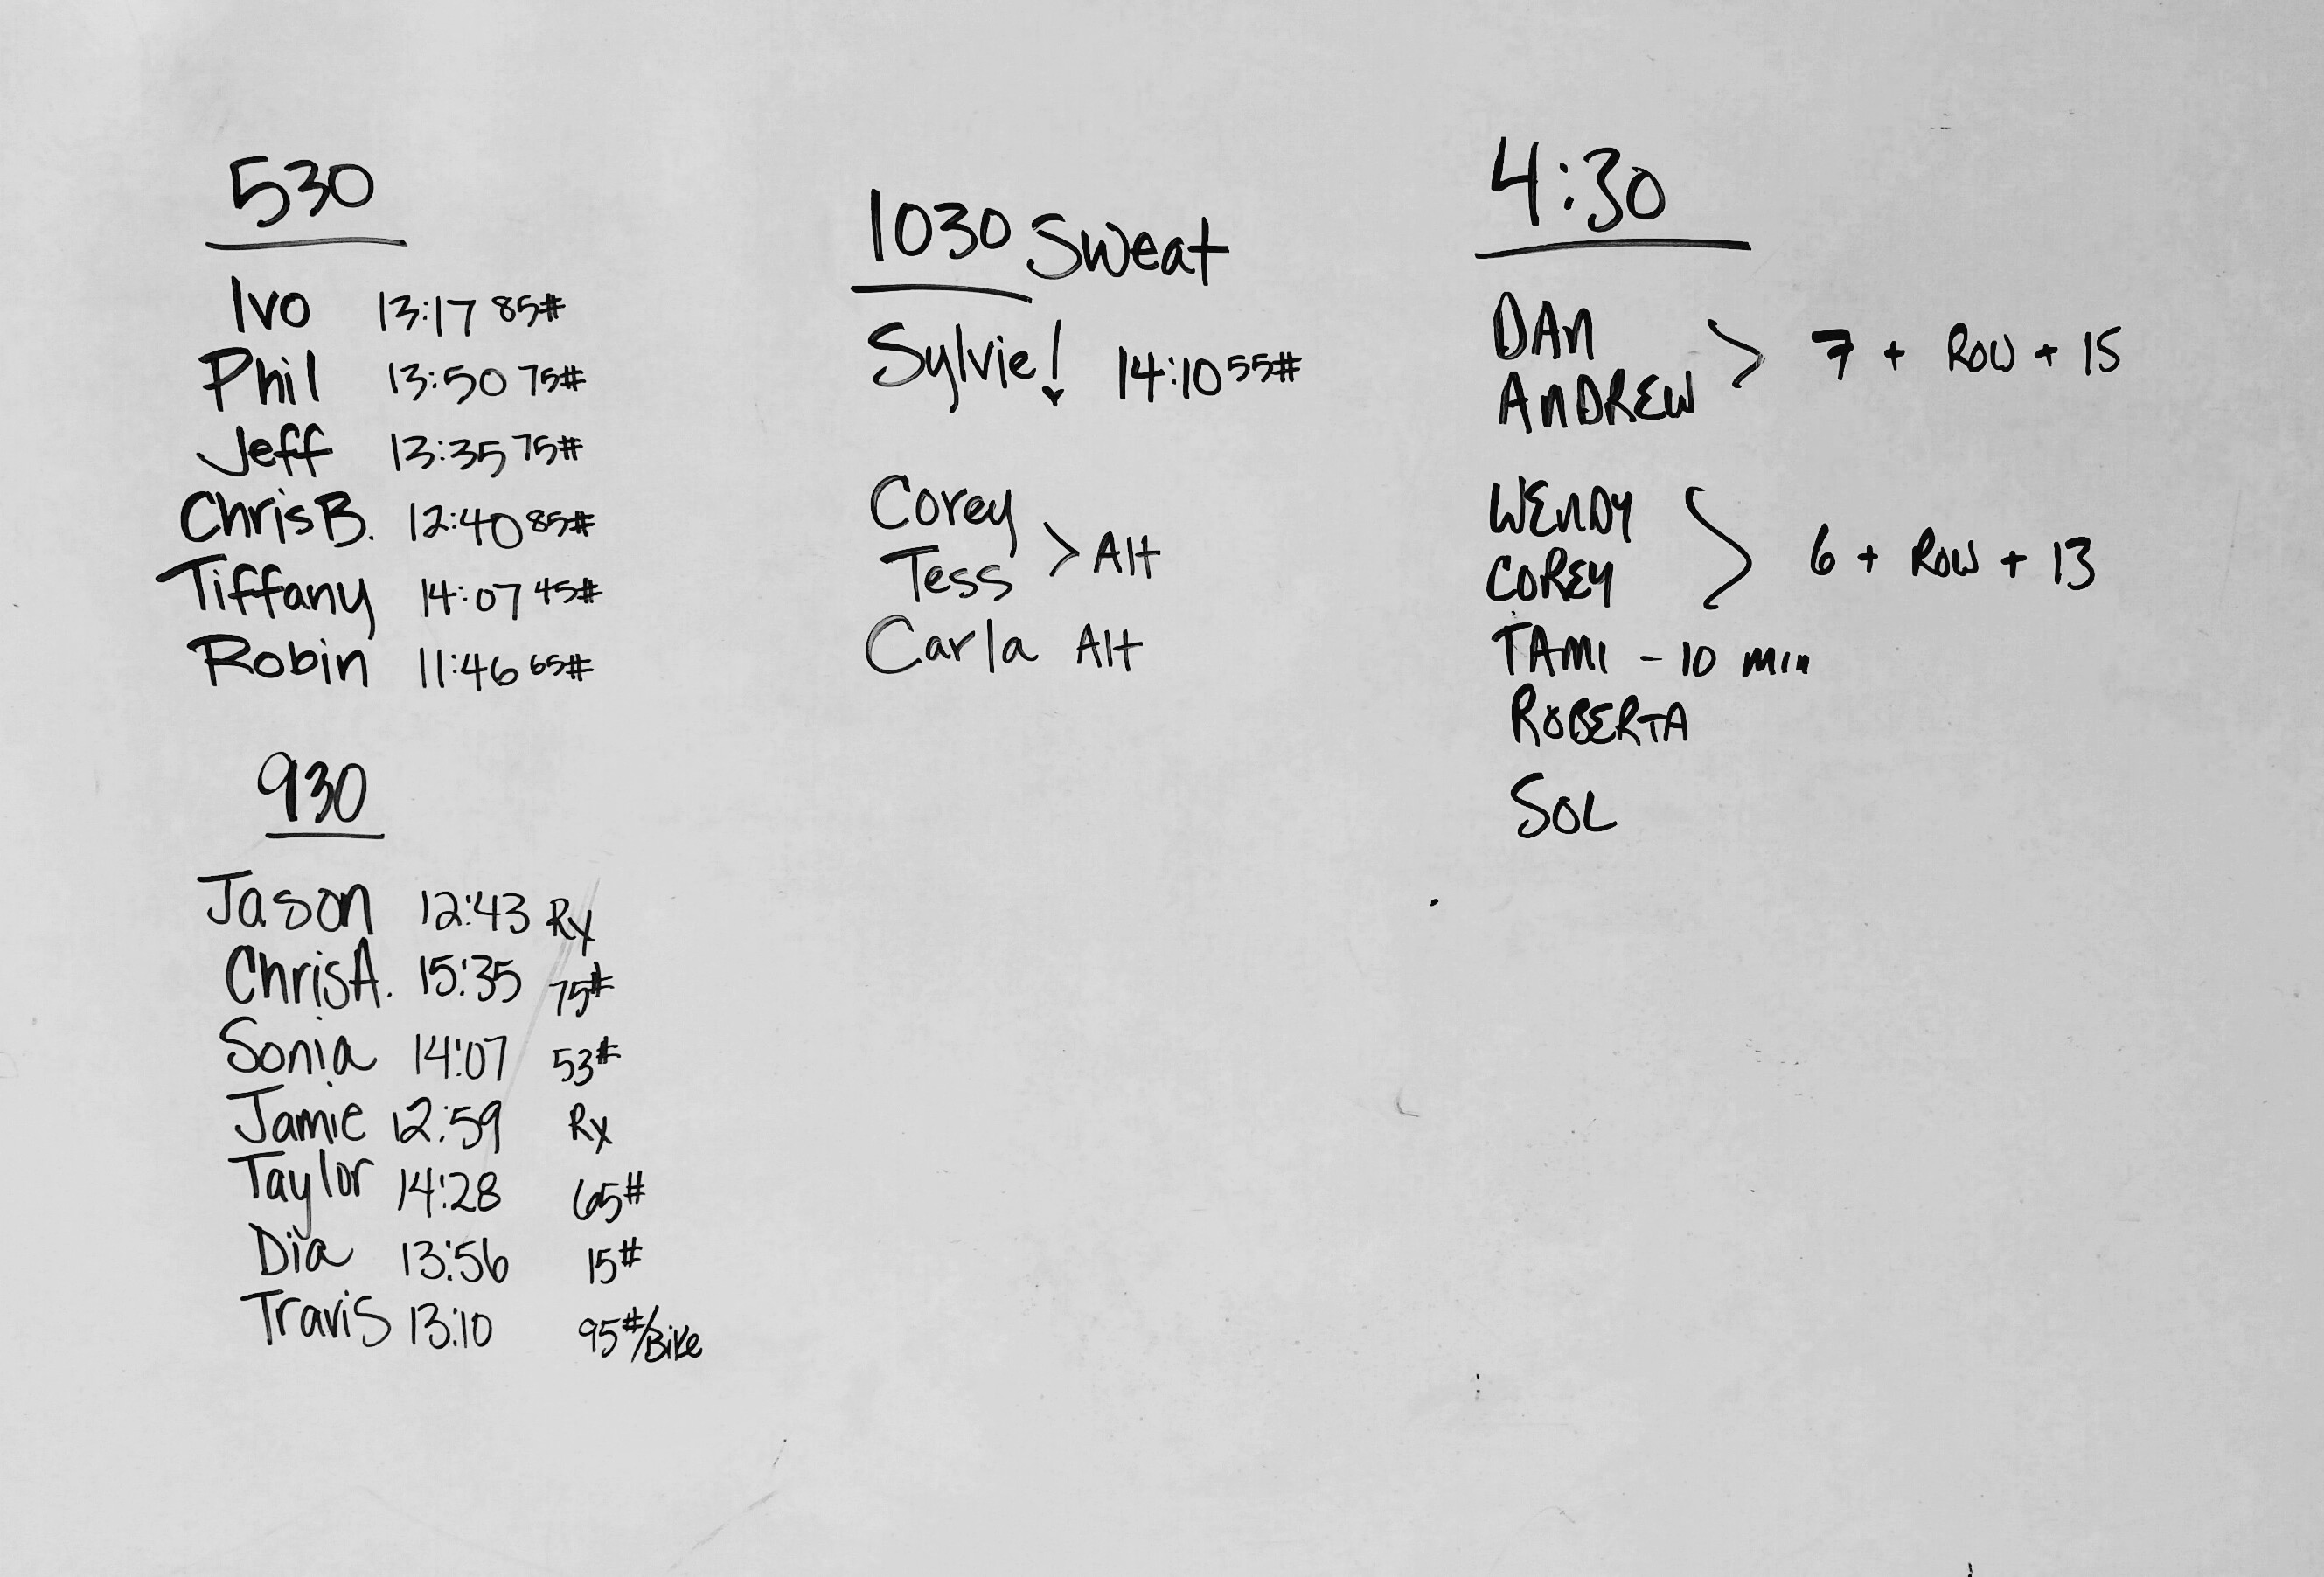 530
Ivo 13:17 85#
Phil 13:50 75#
Jeff 13:35 75#
Chris B. 12:40 85#
Tiffany 14:07 45#
Robin 11:46 65#
930
Jason 12:43 Rx
Chris A. 15:35 75#
Sonia 14:07 53#
Jamie 12:59 Rx
Taylor 14:28 65#
Dia 13:56 15#
Travis 13:10 95#/Bike
1030 Sweat
Sylvie! 14:10 55#
Corey
Tess > Alt
Carla Alt
4:30
DAN
ANDREW > 7 + ROW + 15
WENDY
COREY > 6 + ROW + 13
TAMI - 10 min
ROBERTA
SOL